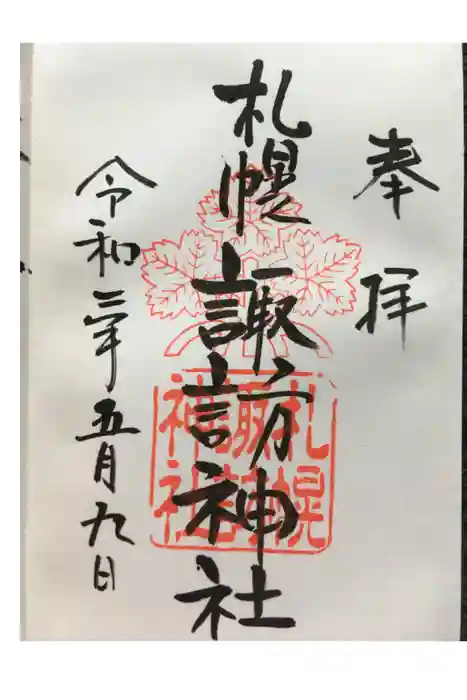 奉拝
札幌諏訪神社
札幌
諏訪
神社
令和三年五月九日